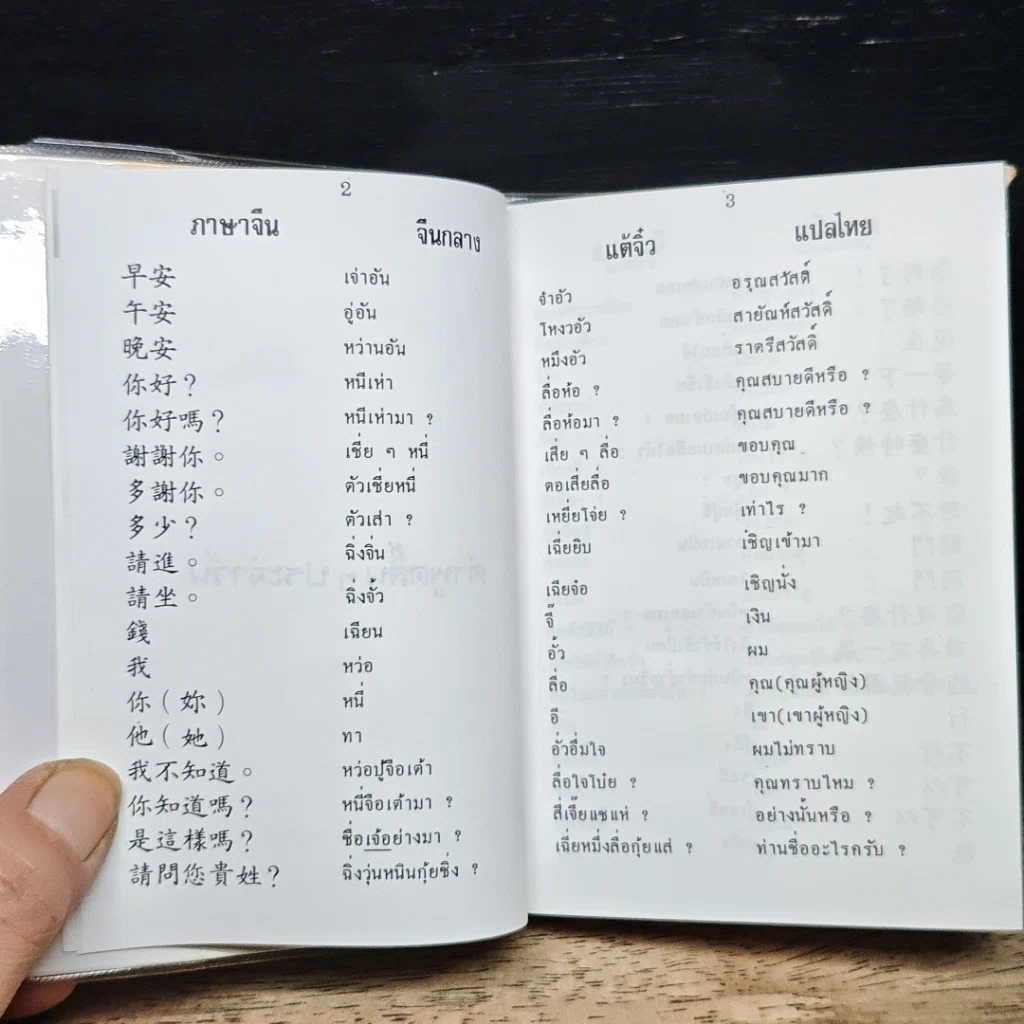 2
ภาษาจีน จีนกลาง
早安 เจ่าอัน
午安 อู่อัน
晚安 หว่านอัน
你好？ หนีเห่า
你好嗎？ หนีเห่ามา ?
謝謝你。 เชี่ย ๆ หนี่
多謝你。 ตัวเชี่ยหนี่
多少？ ตัวเส่า ?
請進。 ฉิ่งจิ่น
請坐。 ฉิ่งจั้ว
錢 เฉียน
我 หว่อ
你（妳） หนี่
他（她） ทา
我不知道。 หว่อปู้จือเต้า
你知道嗎？ หนี่จือเต้ามา ?
是這樣嗎？ ชื่อเจ้อย่างมา ?
請問您貴姓？ ฉิ่งวุ่นหนินกุ้ยชิ่ง ?
3
แต้จิ๋ว แปลไทย
จำอัว อรุณสวัสดิ์
โหงวอัว สายัณห์สวัสดิ์
หมึงอัว ราตรีสวัสดิ์
ลื่อห้อ ? คุณสบายดีหรือ ?
ลื่อห้อมา ? คุณสบายดีหรือ ?
เสี่ย ๆ ลื่อ ขอบคุณ
ตอเสี่ยลื่อ ขอบคุณมาก
เหยี่ยโจ่ย ? เท่าไร ?
เฉี่ยยิบ เชิญเข้ามา
เฉียจ๋อ เชิญนั่ง
จี๊ เงิน
อั้ว ผม
ลื่อ คุณ(คุณผู้หญิง)
อี เขา(เขาผู้หญิง)
อั่วอื่มใจ ผมไม่ทราบ
ลื่อใจโบ๋ย ? คุณทราบไหม ?
สี่เจี๊ยแชแห่ ? อย่างนั้นหรือ ?
เฉี่ยหมึ่งลื่อกุ้ยแส่ ? ท่านชื่ออะไรครับ ?